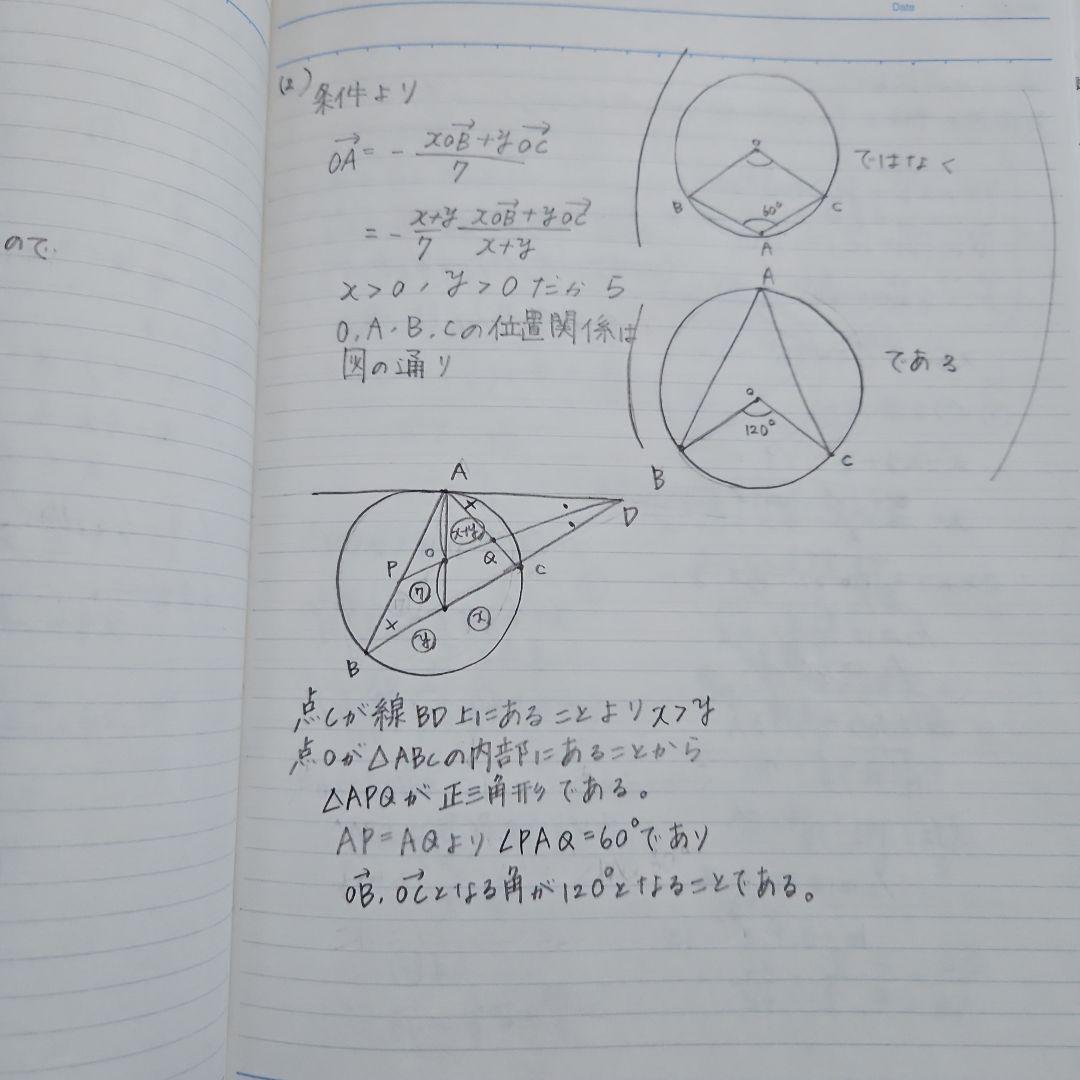 Date
ので.
(2) 条件より
OA→ = - (xOB→ + yOC→)/7
= - (x+y)/7 (xOB→ + yOC→)/(x+y)
x>0, y>0 だから
O, A, B, Cの位置関係は
図の通り
O
B
60°
C
A
ではなく
A
O
120°
B
C
である
A
D
×
x+y
O
Q
C
P
7
×
y
x
B
点Cが線BD上にあることよりx>y
点Oが△ABCの内部にあることから
△APQが正三角形である。
AP=AQより∠PAQ=60°であり
OB→, OC→となる角が120°となることである。